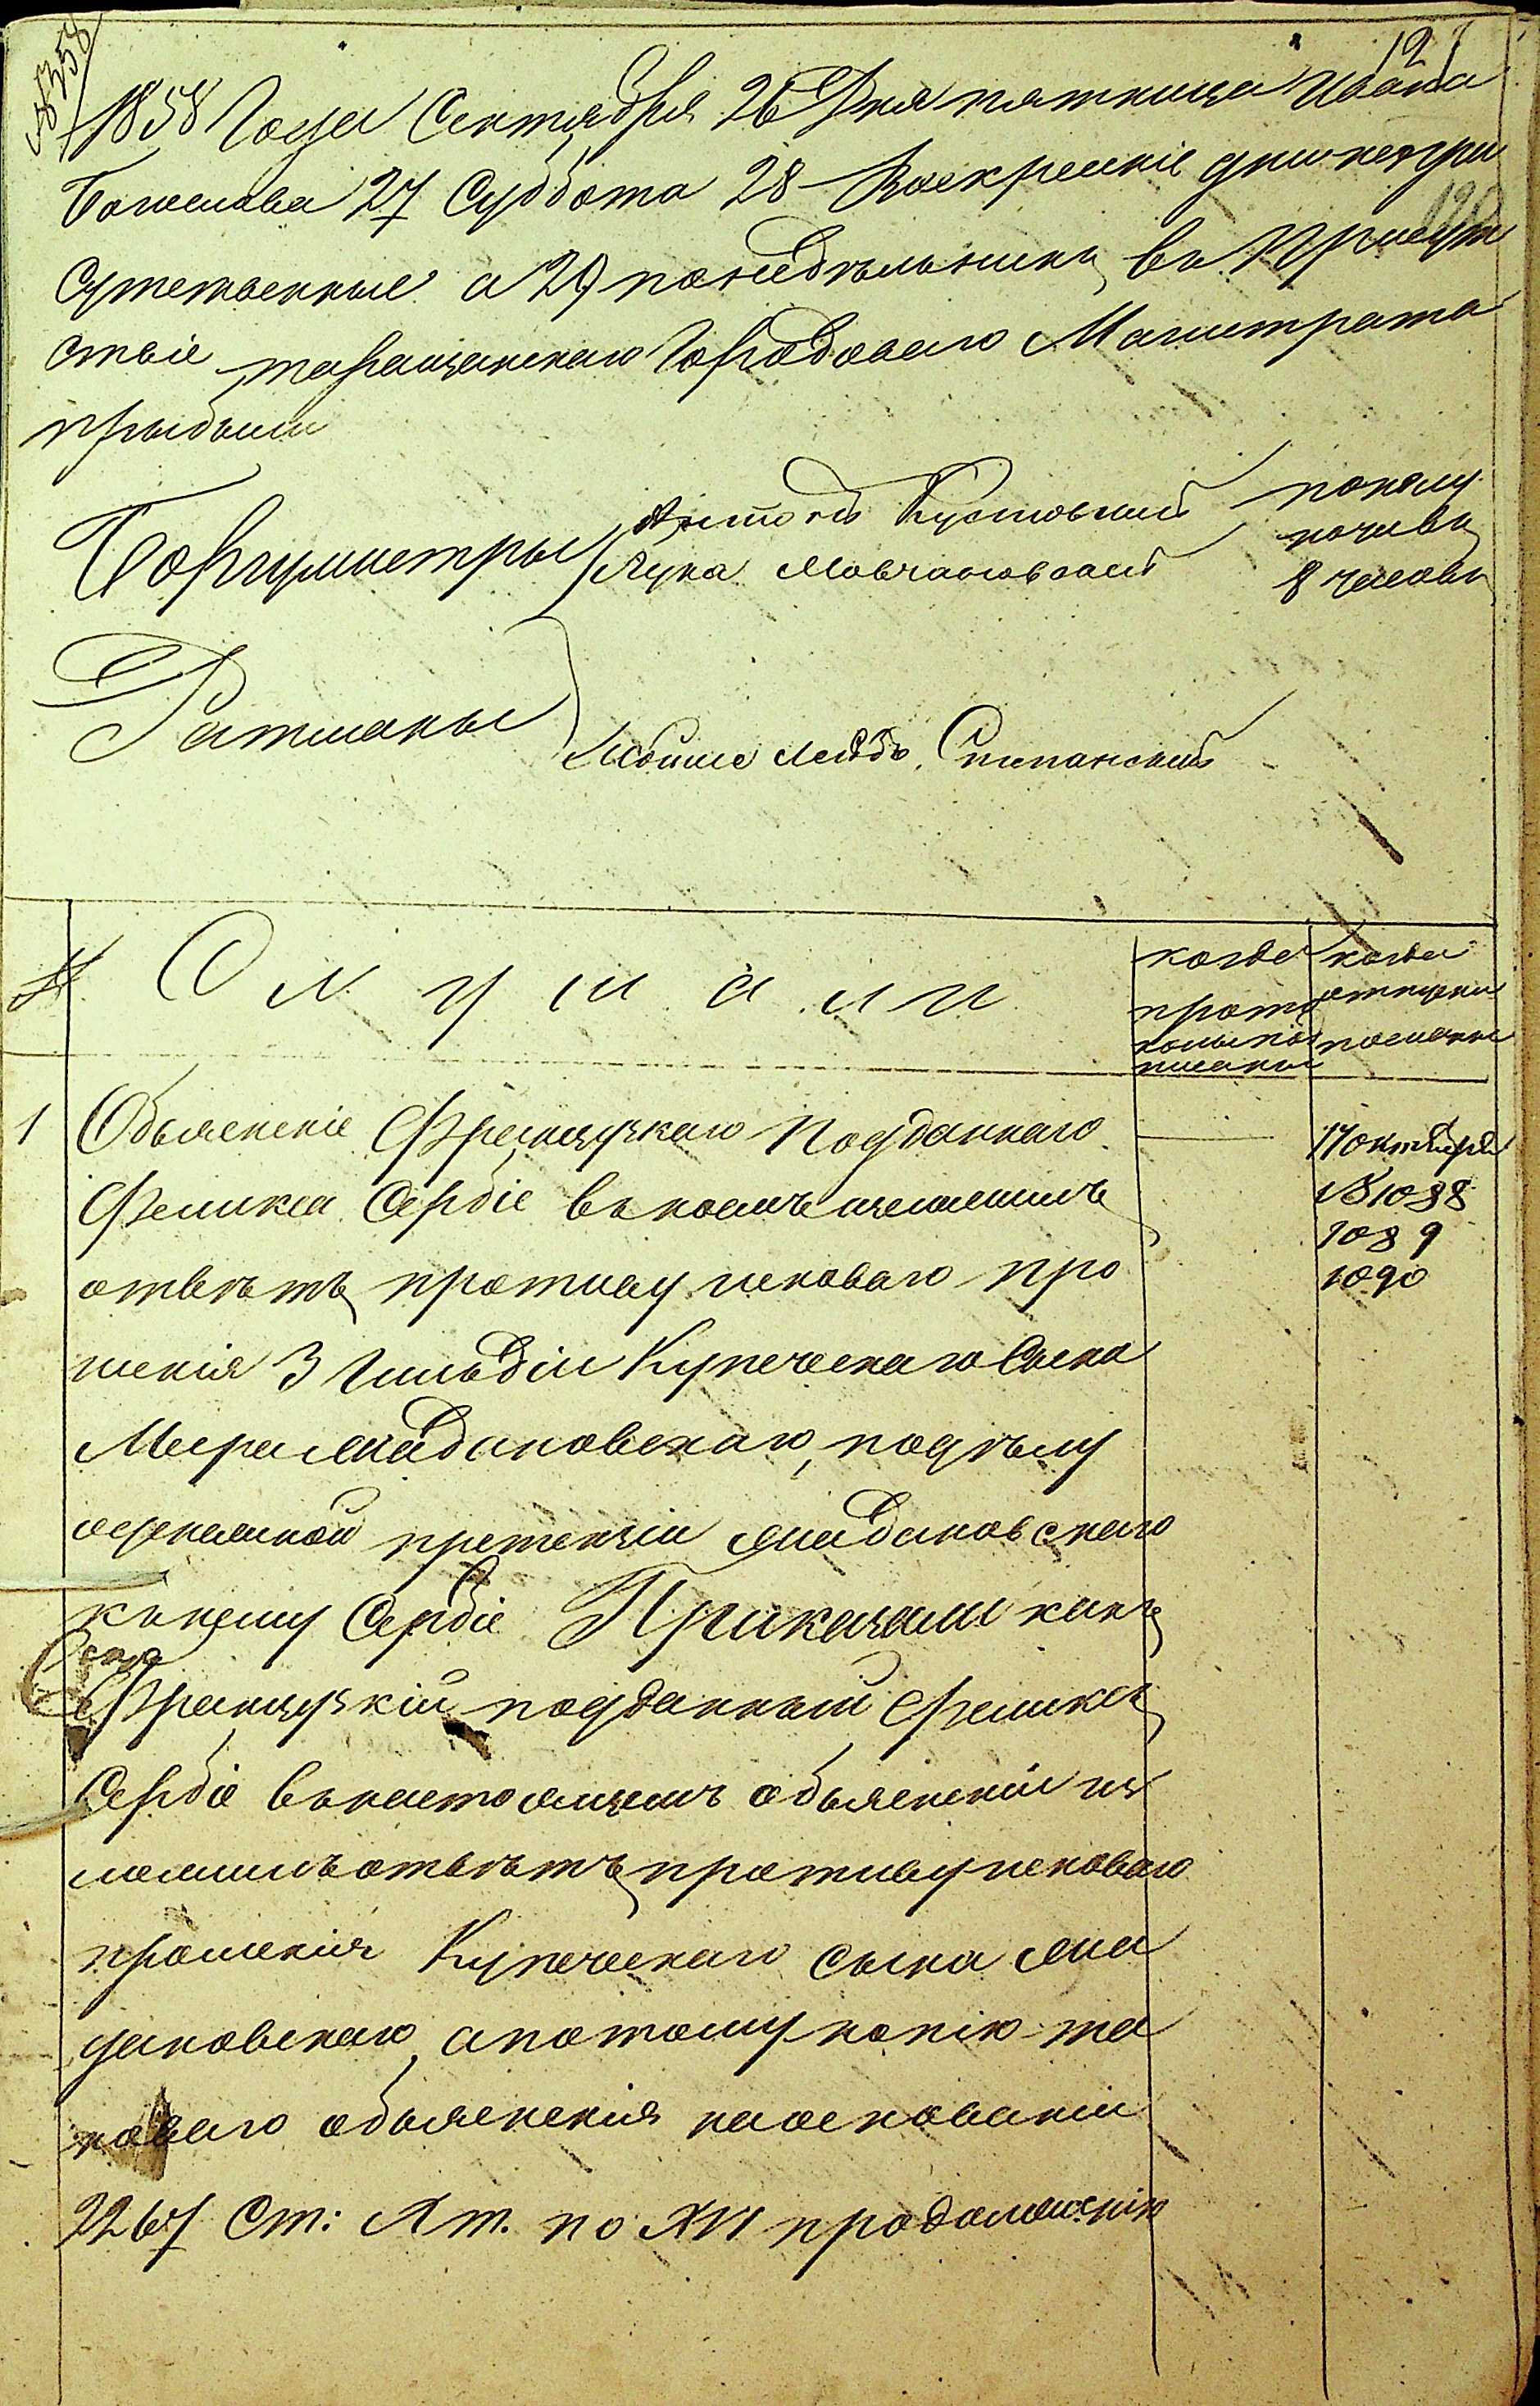 12
1858 Года Сентября 26 Дня пятница Иоана
Богослова 27 Суббота 28 Воскресеніе дни непри
сутственные а 29 понедѣльникъ въ Присут
ствіе таращанскаго Городоваго Магистрата
прибыли
Бургумистры Антонъ Кустовскій пополу
Лука Мовчановскій ночивъ
8 часовъ
Ратманы
Лейбъ Степанскій
№ Слушали
когда прото колы по писаны
когда отпуски посланы
1 Объясненіе Французкаго Подданнаго
17 октября
Феликса Сербіе въ коемъ изъяснилъ
№ 1088
отвѣтъ противу исковаго про
1089
шенія 3 Гильдіи Купеческаго Сына
1090
Меера Майдановскаго, по дѣлу
о денежной претензіи Майдановскаго
къ нему Сербіе Приказали какъ
Французкій подданный Феликсъ
Сербіе въ настоящемъ объясненіи из
ложилъ отвѣтъ противу исковаго
прошенія Купеческаго сына Май
дановскаго, а потому копію та
коваго объясненія на основаніи
2267 Ст: X т. по XVI продолженію